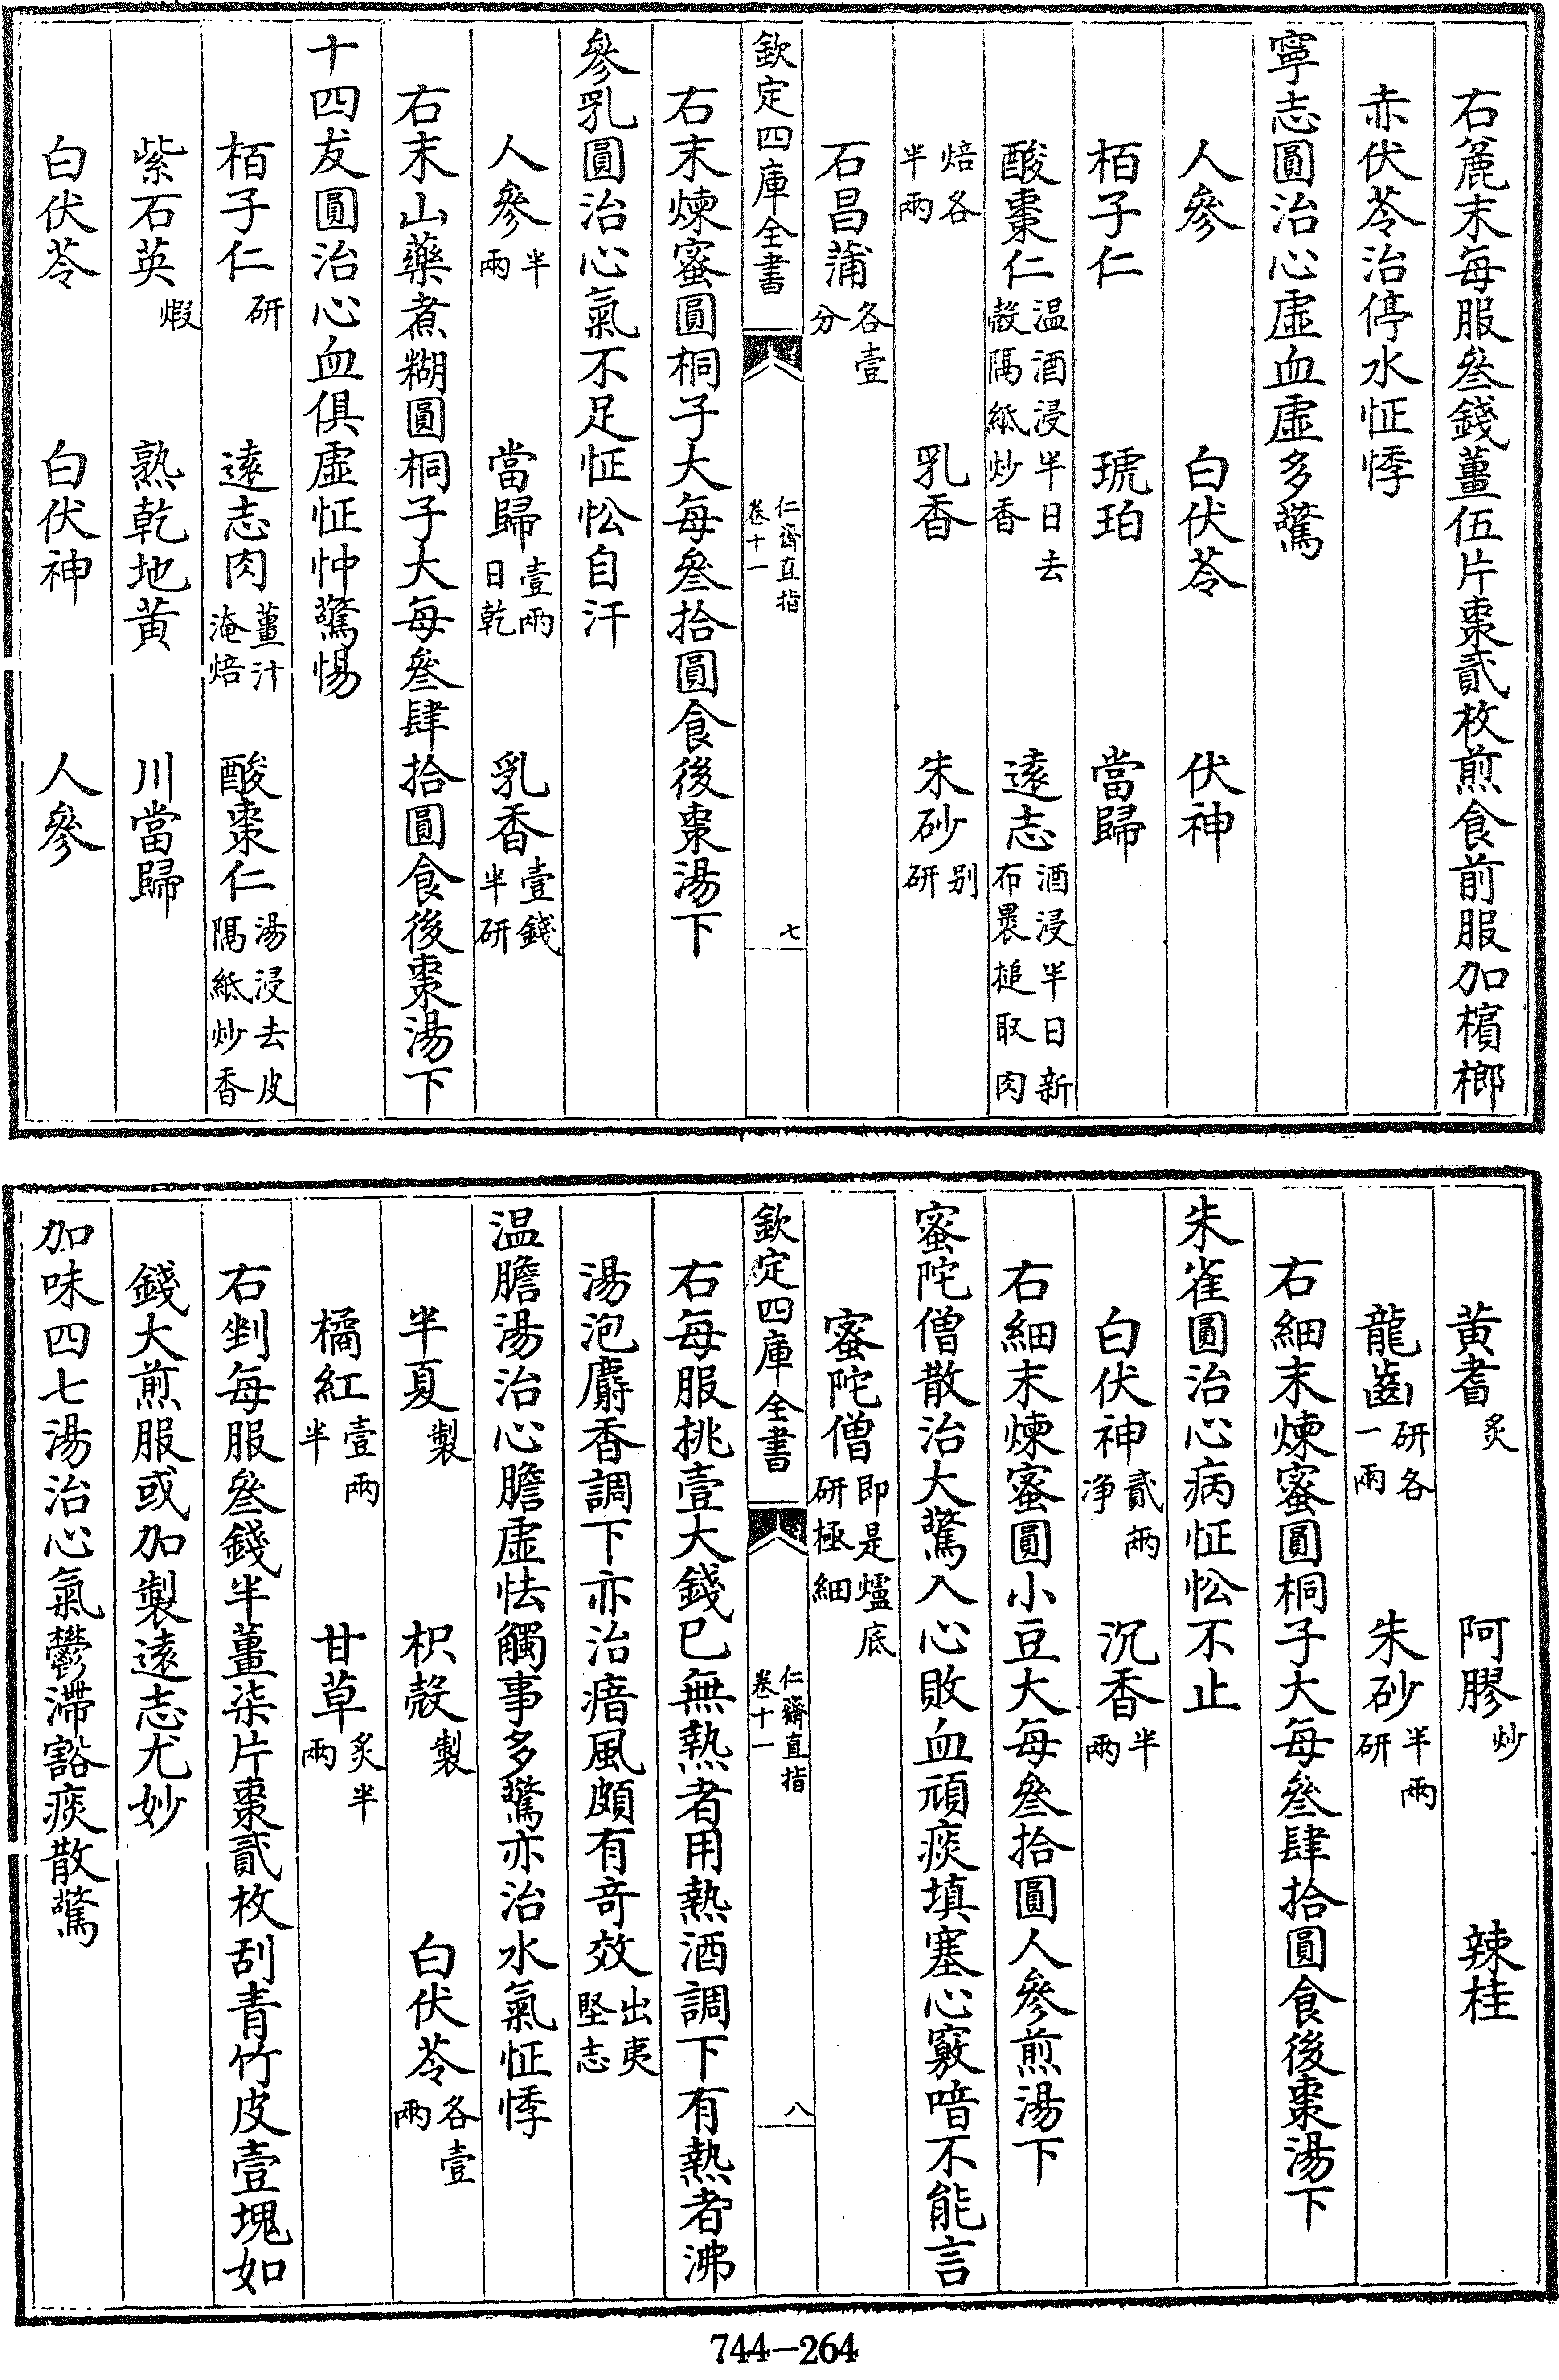 右麄末每服叄錢薑伍片棗貳枚煎食前服加檳榔
赤伏苓治停水怔悸
寧志圓治心虛血虛多驚
人參　白伏苓　伏神
栢子仁　琥珀　當歸
酸棗仁温酒浸半日去殼隔紙炒香　遠志酒浸半日新布裹搥取肉
焙各半兩　乳香　朱砂别研
石昌蒲各壹分
欽定四庫全書　仁齋直指卷十一　七
右末煉蜜圓桐子大每叄拾圓食後棗湯下
參乳圓治心氣不足怔忪自汗
人參半兩　當歸壹兩日乾　乳香壹錢半研
右末山藥煮糊圓桐子大每叄肆拾圓食後棗湯下
十四友圓治心血俱虛怔忡驚惕
栢子仁研　遠志肉薑汁淹焙　酸棗仁湯浸去皮隔紙炒香
紫石英煆　熟乾地黄　川當歸
白伏苓　白伏神　人參
黄耆炙　阿膠炒　辣桂
龍齒研各一兩　朱砂半兩研
右細末煉蜜圓桐子大每叄肆拾圓食後棗湯下
朱雀圓治心病怔忪不止
白伏神貳兩净　沉香半兩
右細末煉蜜圓小豆大每叄拾圓人參煎湯下
蜜陀僧散治大驚入心敗血頑痰填塞心竅喑不能言
蜜陀僧即是爐底研極細
欽定四庫全書　仁齋直指卷十一　八
右每服挑壹大錢已無熱者用熱酒調下有熱者沸
湯泡麝香調下亦治瘖風頗有奇效出夷堅志
温膽湯治心膽虛怯觸事多驚亦治水氣怔悸
半夏製　枳殼製　白伏苓各壹兩
橘紅壹兩半　甘草炙半兩
右剉每服叄錢半薑柒片棗貳枚刮青竹皮壹塊如
錢大煎服或加製遠志尤妙
加味四七湯治心氣鬱滯豁痰散驚
744-264